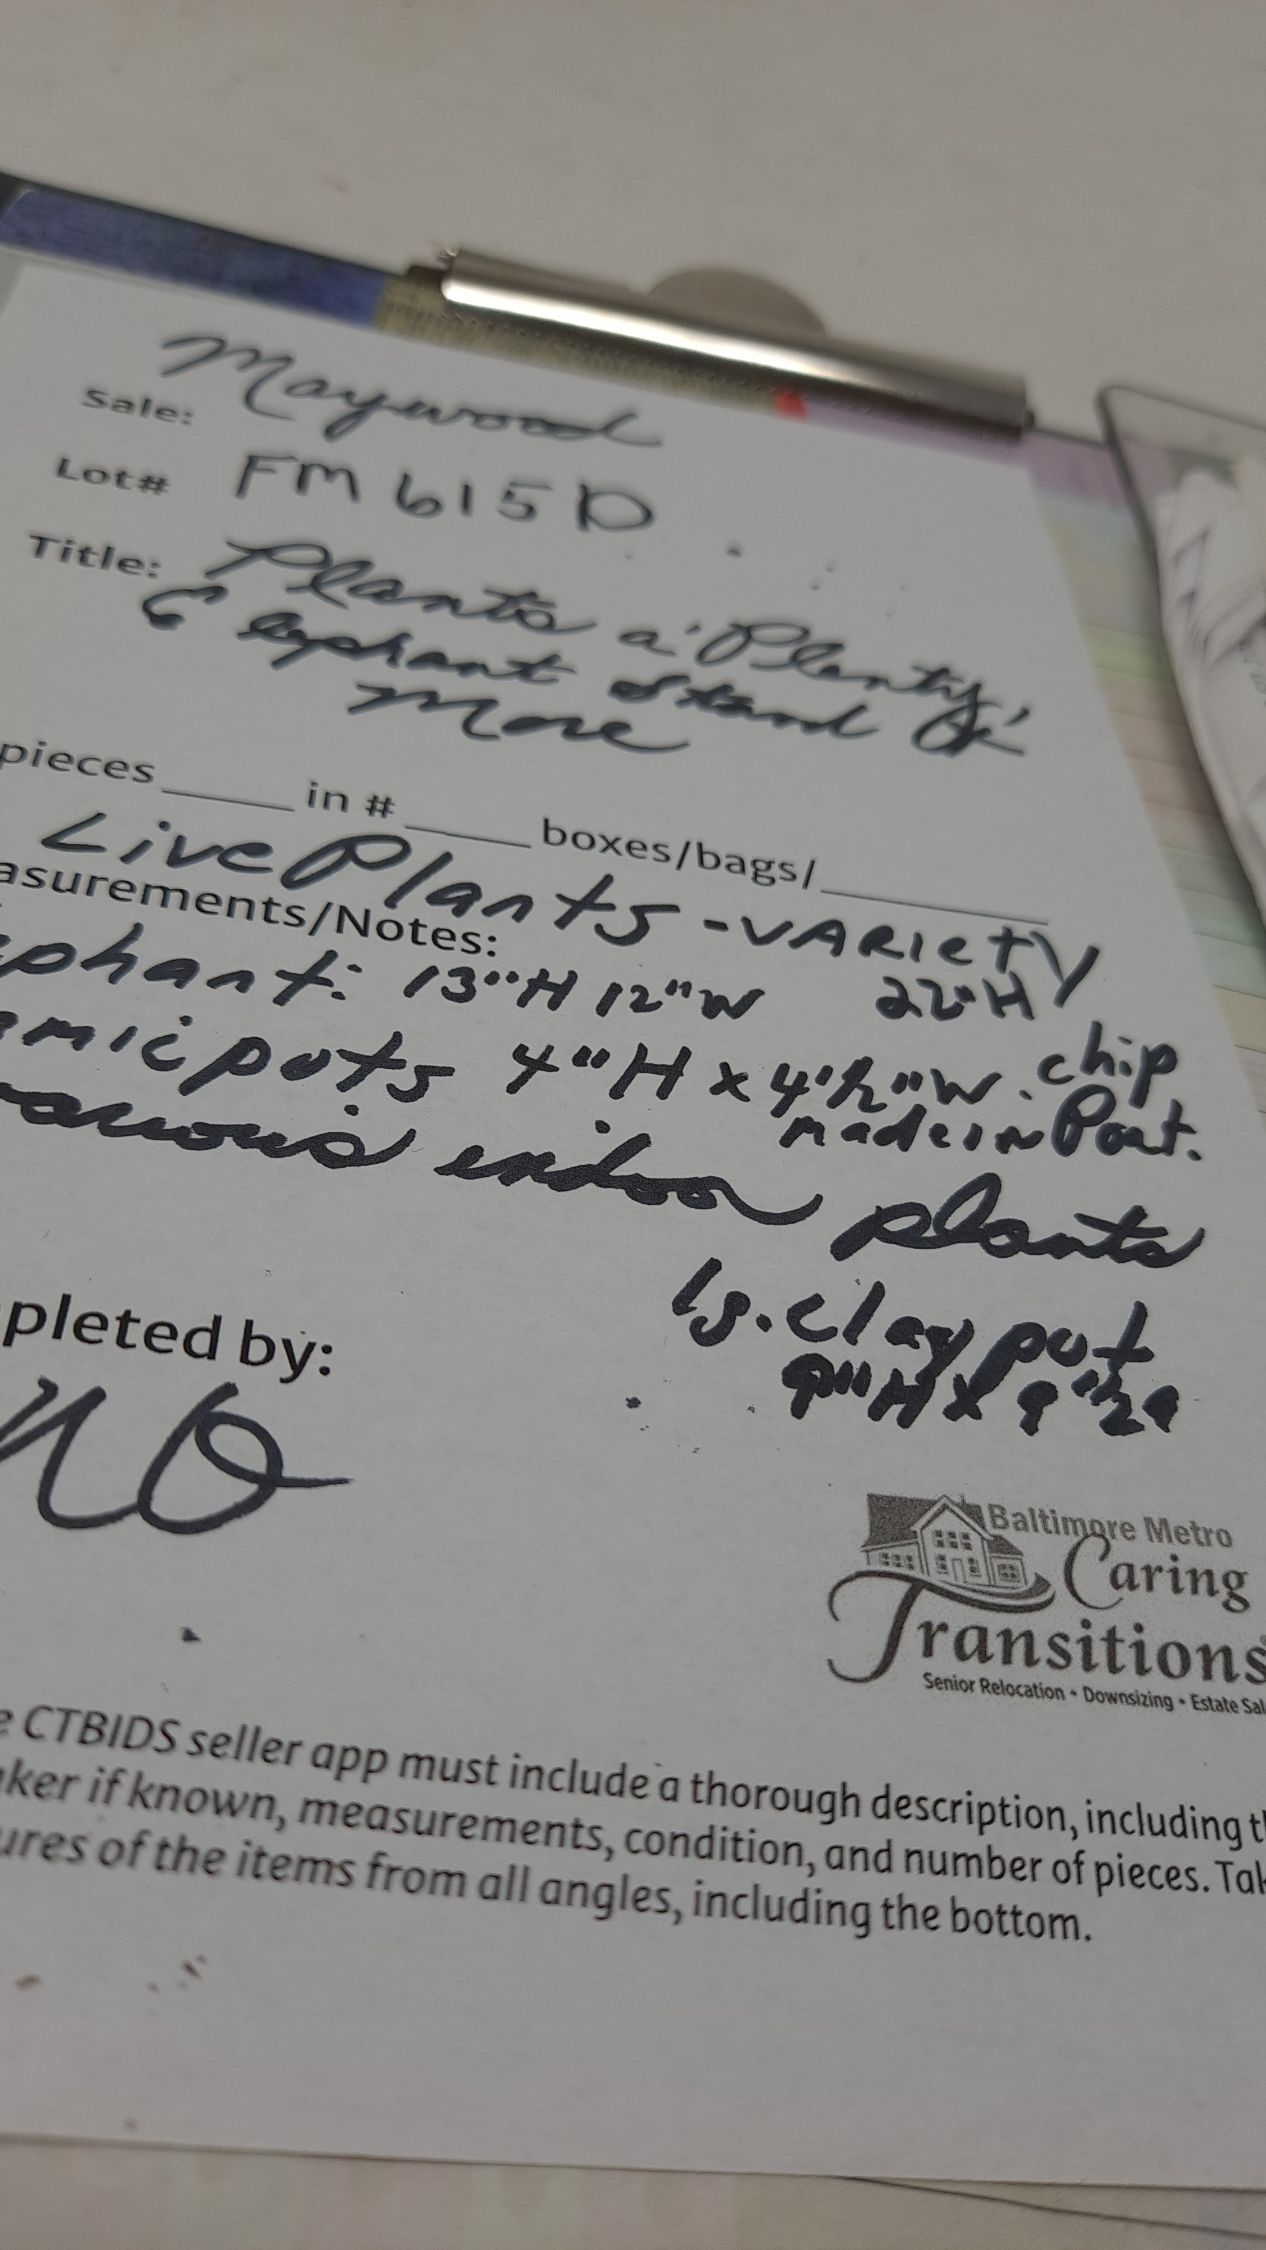 Maywood
Sale:
Lot# FM 615 D
Title: Plants a' Plenty,
Elephant Stand &
More
pieces _____ in # _____ boxes/bags/_________
Live Plants - VARIETY
asurements/Notes:
phant: 13"H 12"W 22"H
amic pots 4"H x 4 1/2"W. chip
made in Port.
various indoor plants
lg. clay pot
9"H x 9 1/2
pleted by:
Baltimore Metro
Caring
Transitions
Senior Relocation • Downsizing • Estate Sal
e CTBIDS seller app must include a thorough description, including t
aker if known, measurements, condition, and number of pieces. Tak
ures of the items from all angles, including the bottom.